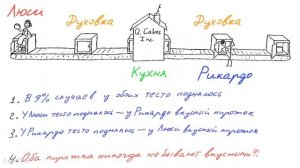 Люси
Духовка
Духовка
Q. Cakes
Inc.
Кухня
Рикардо
1. В 9% случаев у обоих тесто поднялось
2. У Люси тесто поднялось — у Рикардо вкусный пирожок
3. У Рикардо тесто поднялось — у Люси вкусный пирожок
4. Оба пирожка никогда не бывают вкусными!!!